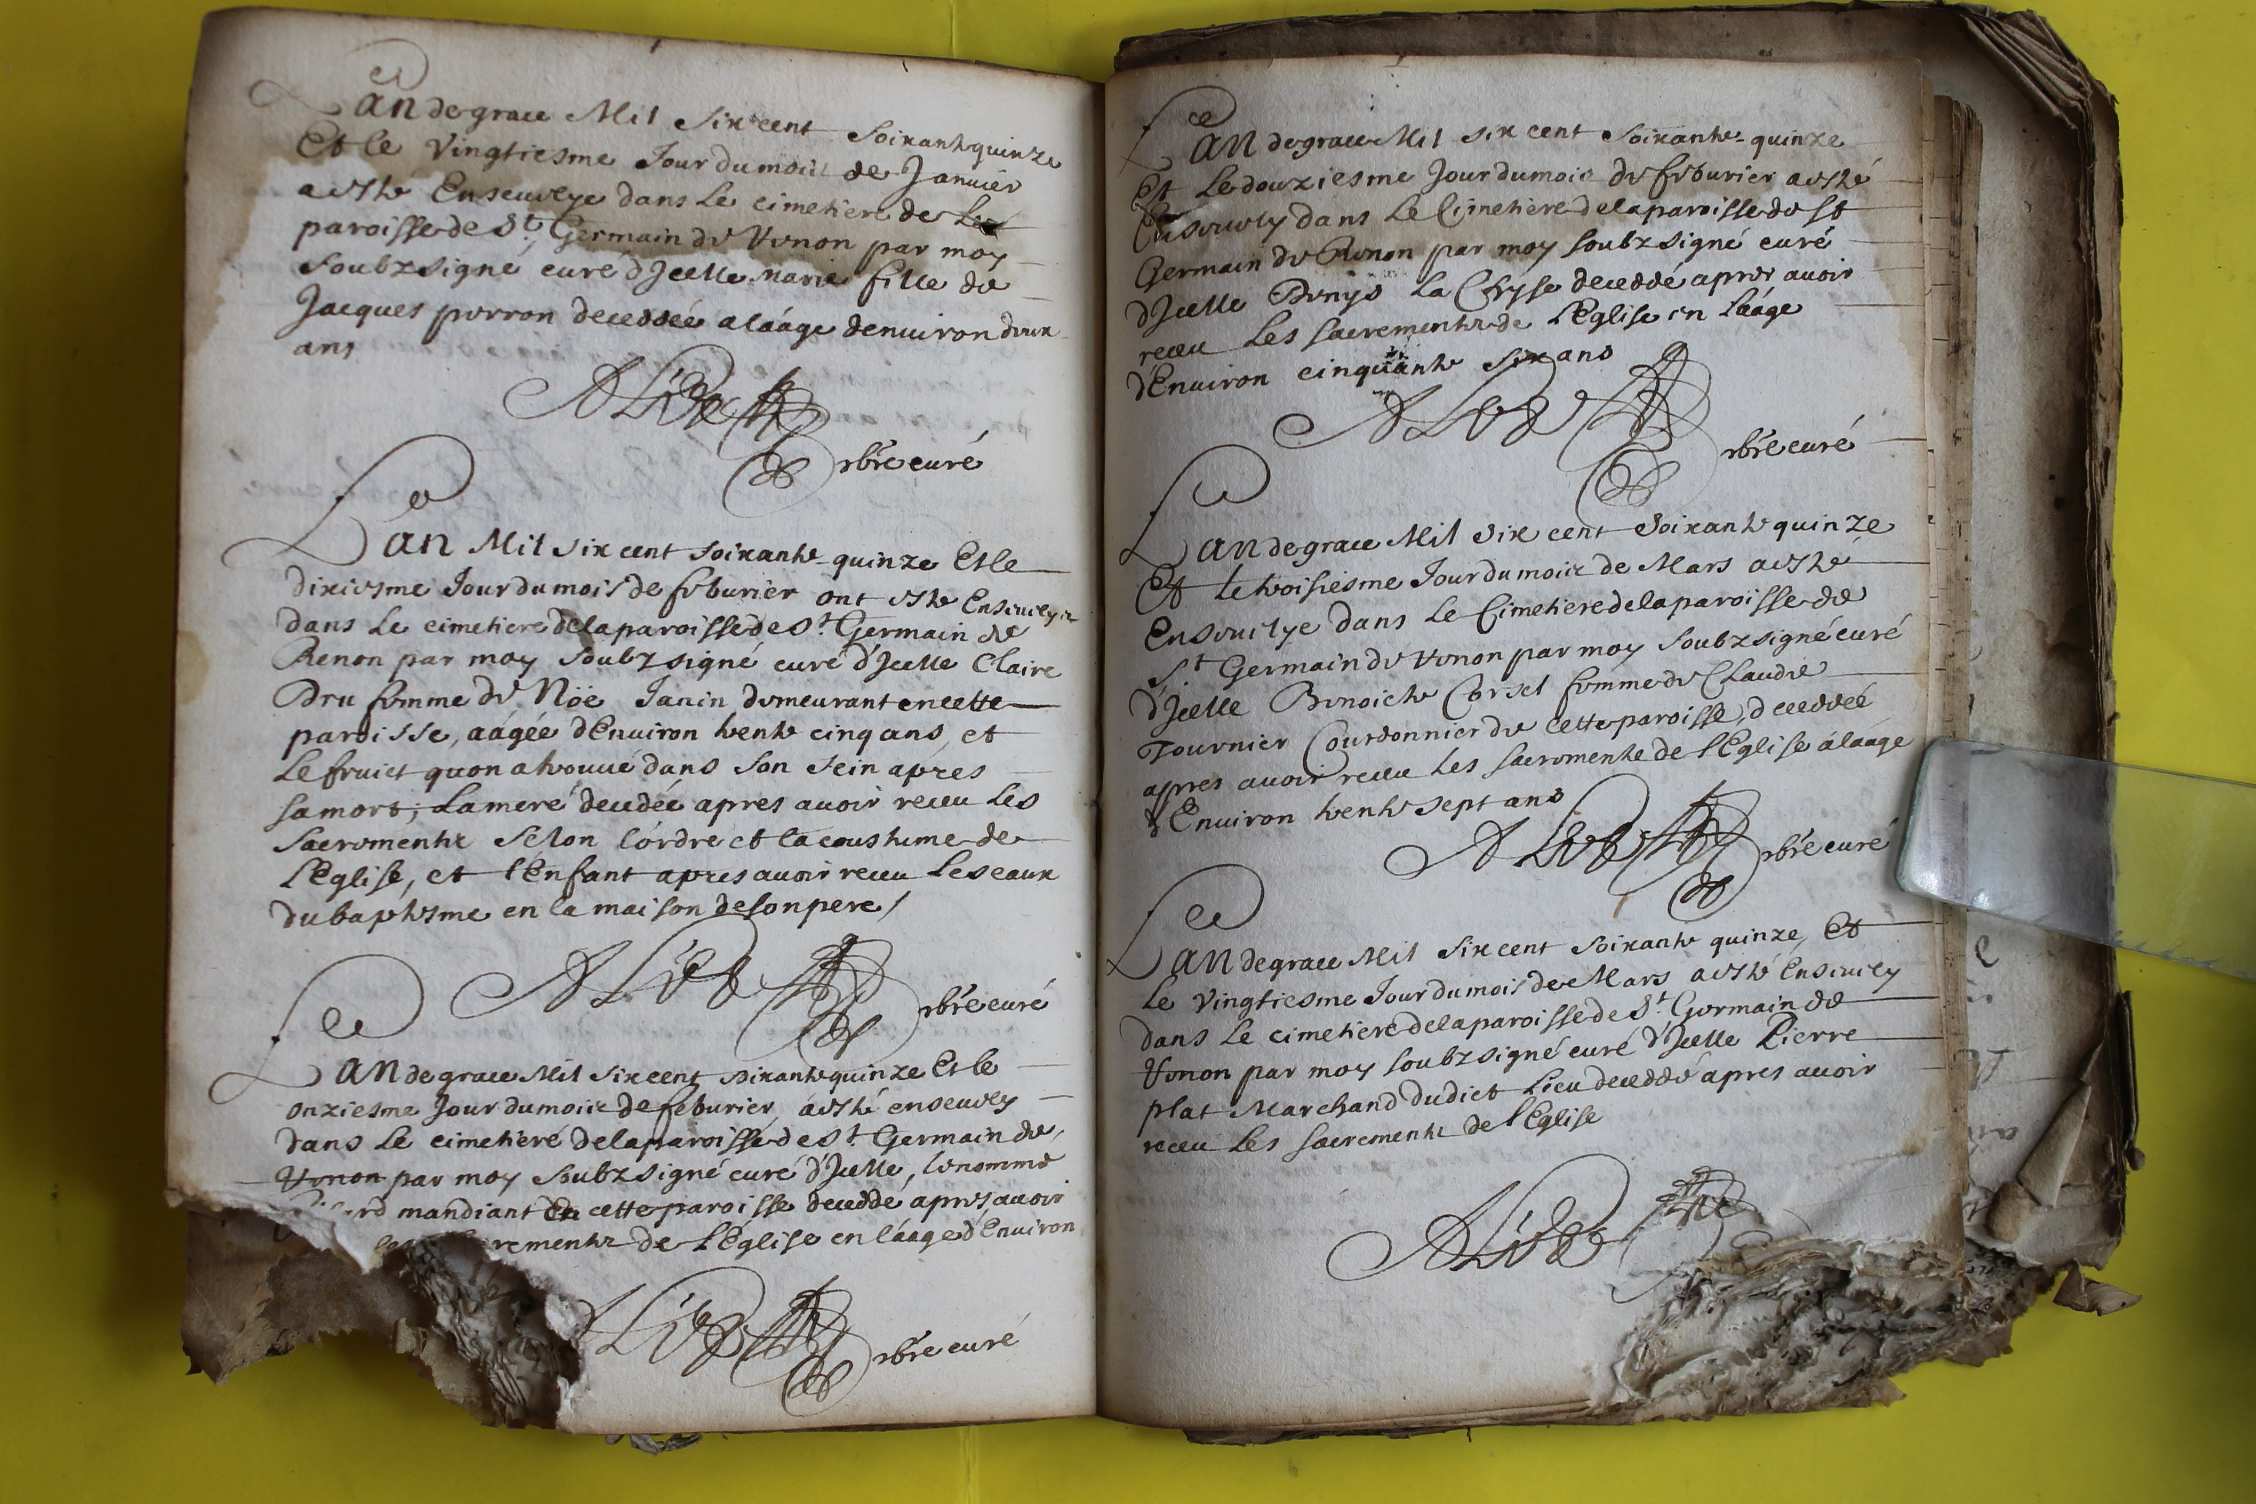 L'an de grace Mil Six cent Soixante quinze
Et le Vingtiesme Jour du mois de Januier
a esté Enseuelye dans Le cimetiere de La
paroisse de St. Germain de Renon par moy
Soubzsigné curé d'Jcelle Marie fille de
Jacques perron decedée a laáge denuiron deux
ans
ALide
pbre curé
L'an Mil Six cent Soixante quinze Et le
dixiesme Jour du mois de feburier ont esté Enseuelys
dans Le cimetiere de la paroisse de St. Germain de
Renon par moy Soubzsigné curé d'Jcelle Claire
Dru femme de Nöe Janin demeurant en cette
paroisse, aágée d'Enuiron trente cinq ans, et
Le fruict quon a trouué dans Son Sein apres
sa mort; La mere decedée apres auoir receu Les
Sacremente Sélon l'ordre et la coustume de
L'Eglise, et l'Enfant apres auoir receu Les eaux
du baptesme en la maison de son pere /
ALide
pbre curé
L'an de grace Mil Six cent Soixante quinze Et le
onziesme Jour du mois de feburier a esté enseuely
dans Le cimetiere de la paroisse de St Germain de,
Renon par moy Soubzsigné curé d'Jcelle, le nommé
mandiant En cette paroisse decedé apres auoir
de L'Eglise en l'áage d'Enuiron
ALide
pbre curé
L'an de grace Mil Six cent Soixante quinze
Et Le douziesme Jour du mois de feburier a esté
Enseuely dans Le Cimetiere de la paroisse de St
Germain de Renon par moy Soubzsigné curé
d'Jcelle Denys La Chyse decedé apres auoir
receu Les Sacremente de L'Eglise en Láage
d'Enuiron cinquante Six ans
ALide
pbre curé
L'an de grace Mil Six cent Soixante quinze
Et le troisiesme Jour du mois de Mars a esté
Enseuelye dans Le Cimetiere de la paroisse de
St Germain de Renon par moy Soubzsigné curé
d'Jcelle Benoicte Corsel femme de Claude
Tournier Courdonnier de cette paroisse, decedée
apres auoir receu Les Sacremente de l'Eglise á laage
d'Enuiron trente sept ans
ALide
pbre curé
L'an de grace Mil Six cent Soixante quinze, Et
Le Vingtiesme Jour du mois de Mars a esté Enseuely
dans Le cimetiere de la paroisse de St Germain de
Renon par moy Soubzsigné curé d'Jcelle Pierre
plat Marchand dudict Lieu decedé apres auoir
receu Les Sacremente de l'Eglise
ALide